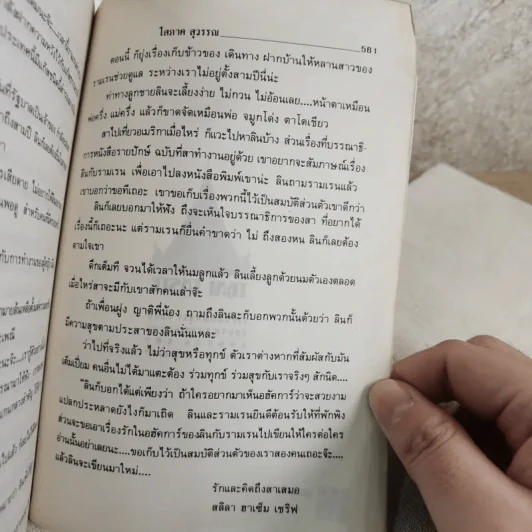 โสภาค สุวรรณ 561
ตอนนี้ ก็ยุ่งเรื่องเก็บข้าวของ เดินทาง ฝากบ้านให้หลานสาวของ
รามเรนช่วยดูแล ระหว่างเราไม่อยู่ตั้งสามปีนี่น่ะ
ท่าทางลูกชายลินจะเลี้ยงง่าย ไม่กวน ไม่อ้อนเลย....หน้าตาเหมือน
พ่อครึ่ง แม่ครึ่ง แล้วก็ขาดจัดเหมือนพ่อ จมูกโด่ง ตาโตเชียว
สาไปเที่ยวอเมริกาเมื่อไหร่ ก็แวะไปหาลินบ้าง ส่วนเรื่องที่บรรณาธิ-
การหนังสือรายปักษ์ ฉบับที่สาทำงานอยู่ด้วย เขาอยากจะสัมภาษณ์เรื่อง
ลินกับรามเรน เพื่อเอาไปลงหนังสือพิมพ์เขาน่ะ ลินถามรามเรนแล้ว
เขาบอกว่าขอทีเถอะ เขาขอเก็บเรื่องพวกนี้ไว้เป็นสมบัติส่วนตัวเขาดีกว่า
ลินก็เลยบอกมาให้ฟัง ถึงจะเห็นใจบรรณาธิการของสา ที่อยากได้
เรื่องนี้ก็เถอะนะ แต่รามเรนก็ยืนคำขาดว่า ไม่ ถึงสองหน ลินก็เลยต้อง
ตามใจเขา
ดึกเต็มที จวนได้เวลาให้นมลูกแล้ว ลินเลี้ยงลูกด้วยนมตัวเองตลอด
เมื่อไหร่สาจะมีกับเขาสักคนเล่าจ๊ะ
ถ้าเพื่อนฝูง ญาติพี่น้อง ถามถึงลินละก็บอกพวกนั้นด้วยว่า ลินก็
มีความสุขตามประสาของลินนั่นแหละ
ว่าไปที่จริงแล้ว ไม่ว่าสุขหรือทุกข์ ตัวเราต่างหากที่สัมผัสกับมัน
เต็มเปี่ยม คนอื่นไม่ได้มาแตะต้อง ร่วมทุกข์ ร่วมสุขกับเราจริงๆ สักนิด....
ลินก็บอกได้แต่เพียงว่า ถ้าใครอยากมาเห็นอัคการ์ว่าจะสวยงาม
แปลกประหลาดยังไงก็มาเถิด ลินและรามเรนยินดีต้อนรับให้ที่พักพิง
ส่วนจะขอเอาเรื่องรักในอัคการ์ของลินกับรามเรนไปเขียนให้ใครต่อใคร
อ่านนั้นอย่าเลยนะ....ขอเก็บไว้เป็นสมบัติส่วนตัวของเราสองคนเถอะจ๊ะ....
แล้วลินจะเขียนมาใหม่....
รักและคิดถึงสาเสมอ
สลิลา ฮาเซ็ม เชริฟ